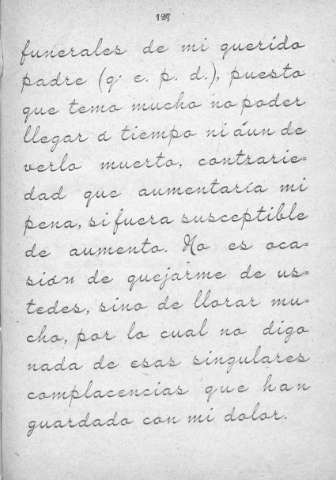 127
funerales de mi querido
padre (q. e. p. d.), puesto
que temo mucho no poder
llegar á tiempo ni áun de
verlo muerto, contrarie-
dad que aumentaría mi
pena, si fuera susceptible
de aumento. No es oca-
sión de quejarme de us-
tedes, sino de llorar mu-
cho, por lo cual no digo
nada de esas singulares
complacencias que han
guardado con mi dolor.